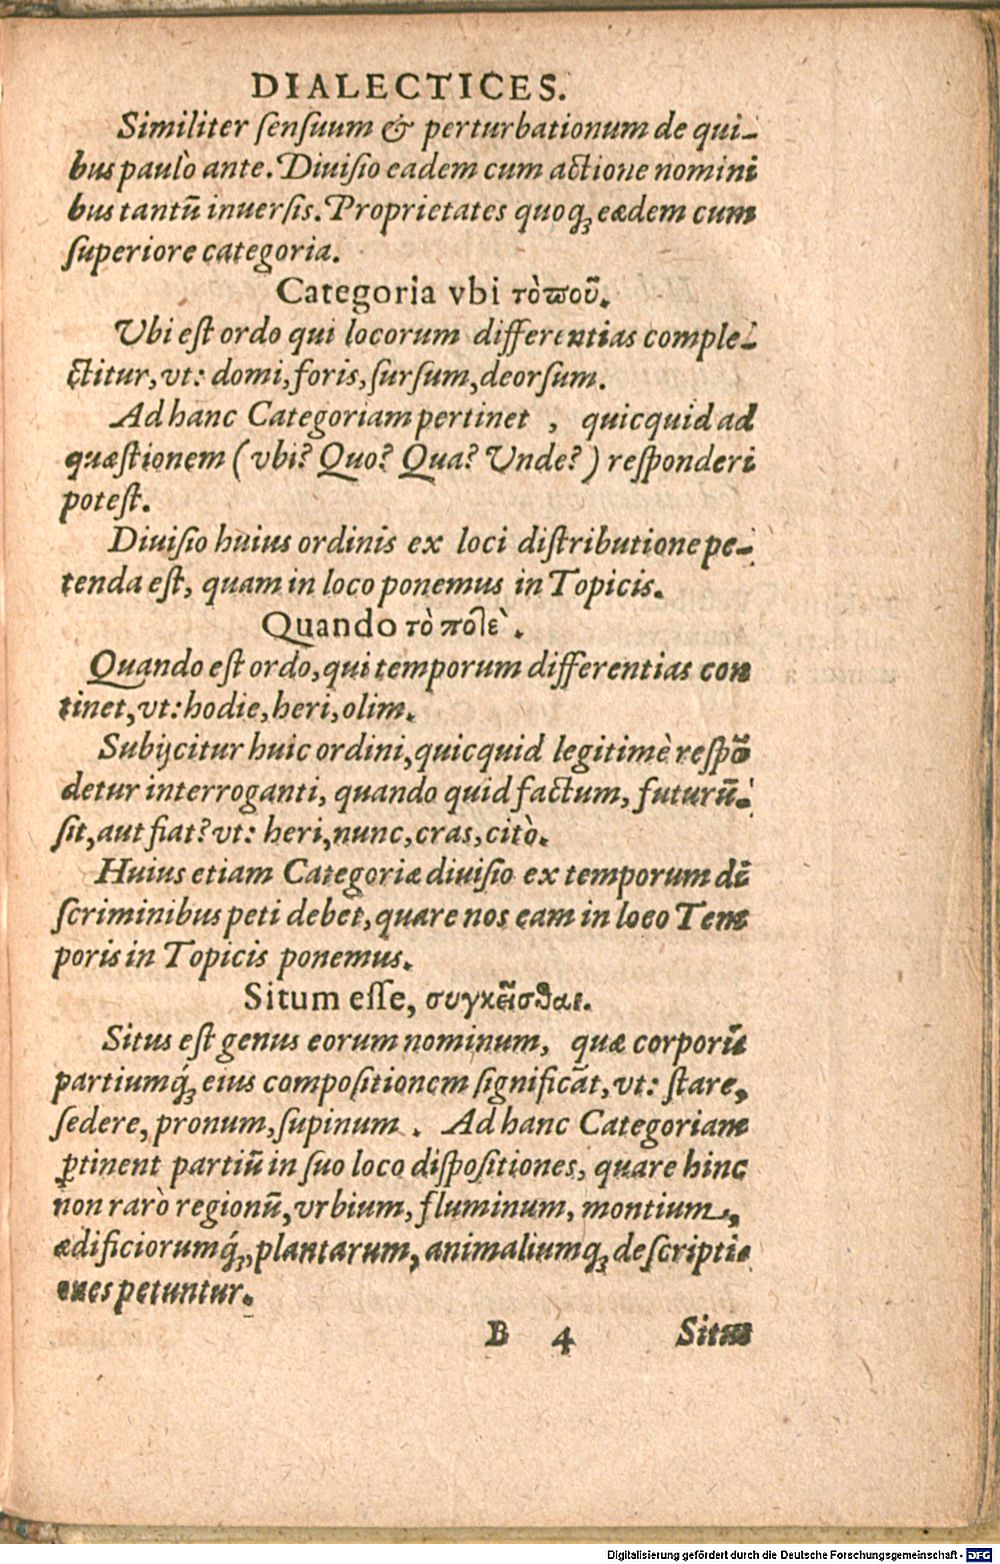 DIALECTICES.
Similiter ſenſuum & perturbationum de qui-
bus paulò ante. Diuiſio eadem cum actione nomini
bus tantũ inuerſis. Proprietates quoq; eædem cum
ſuperiore categoria.
Categoria vbi τὸ ποῦ.
Vbi eſt ordo qui locorum differentias comple-
ctitur, vt: domi, foris, ſurſum, deorſum.
Ad hanc Categoriam pertinet , quicquid ad
quæſtionem (vbi? Quo? Qua? Vnde?) reſponderi
poteſt.
Diuiſio huius ordinis ex loci diſtributione pe-
tenda eſt, quam in loco ponemus in Topicis.
Quando τὸ ποτὲ.
Quando eſt ordo, qui temporum differentias con
tinet, vt: hodie, heri, olim.
Subijcitur huic ordini, quicquid legitimè reſpõ
detur interroganti, quando quid factum, futurũ.
ſit, aut fiat? vt: heri, nunc, cras, citò.
Huius etiam Categoriæ diuiſio ex temporum di
ſcriminibus peti debet, quare nos eam in loco Tem
poris in Topicis ponemus.
Situm eſſe, συγκεῖσθαι.
Situs eſt genus eorum nominum, quæ corporũ
partiumq́; eius compoſitionem ſignificãt, vt: ſtare,
ſedere, pronum, ſupinum. Ad hanc Categoriam
ꝑtinent partiũ in ſuo loco diſpoſitiones, quare hinc
non rarò regionũ, vrbium, fluminum, montium,
ædificiorumq́;, plantarum, animaliumq; deſcriptio
nes petuntur.
B 4 Situs
Digitalisierung gefördert durch die Deutsche Forschungsgemeinschaft - DFG